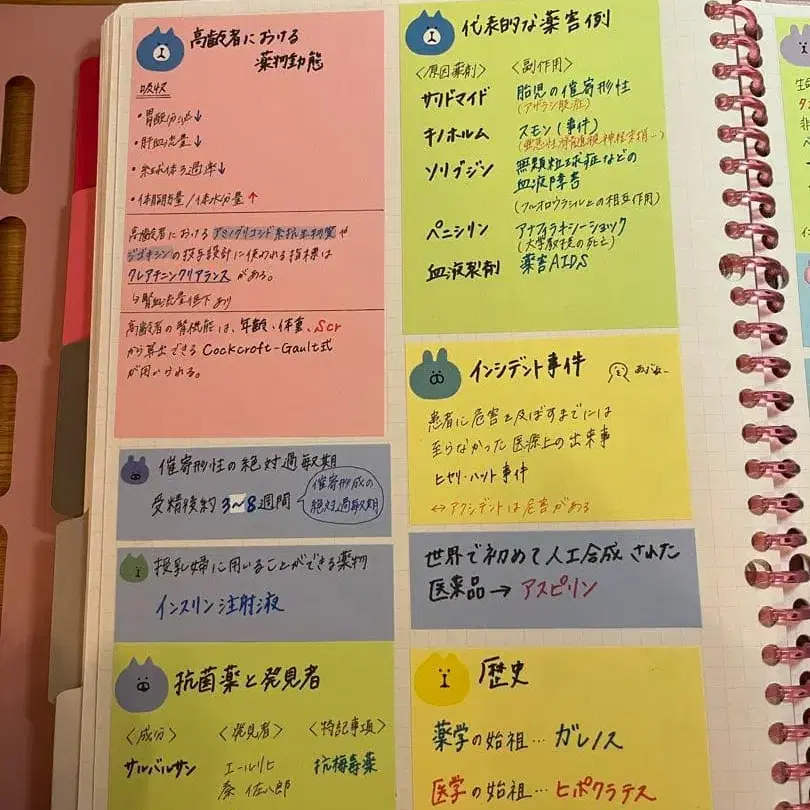 高齢者における
薬物動態
吸収
・胃酸分泌↓
・肝血流量↓
・糸球体ろ過率↓
・体脂肪量/体水分量↑
高齢者におけるアミノグリコシド系抗生物質や
ジゴキシンの投与設計に使われる指標は
クレアチニンクリアランスがある。
↳腎血流量低下あり
高齢者の腎機能は、年齢・体重、Scr
から算出できるCockcroft-Gault式
が用いられる。
催奇形性の絶対過敏期
受精後約3~8週間
催奇形成の
絶対過敏期
授乳婦に用いることができる薬物
インスリン注射液
抗菌薬と発見者
〈成分〉 〈発見者〉 〈特記事項〉
サルバルサン エールリヒ 抗梅毒薬
秦 佐八郎
代表的な薬害例
〈原因薬剤〉 〈副作用〉
サリドマイド 胎児の催奇形性
(アザラシ肢症)
キノホルム スモン(事件)
(亜急性脊髄視神経末梢…)
ソリブジン 無顆粒球症などの
血液障害
(フルオロウラシル上の相互作用)
ペニシリン アナフィラキシーショック
(大学教授の死亡)
血液製剤 薬害AIDS
インシデント事件
患者に危害を及ぼすまでには
至らなかった医療上の出来事
ヒヤリ・ハット事件
↔アクシデントは危害がある
世界で初めて人工合成された
医薬品→アスピリン
歴史
薬学の始祖…ガレノス
医学の始祖…ヒポクラテス